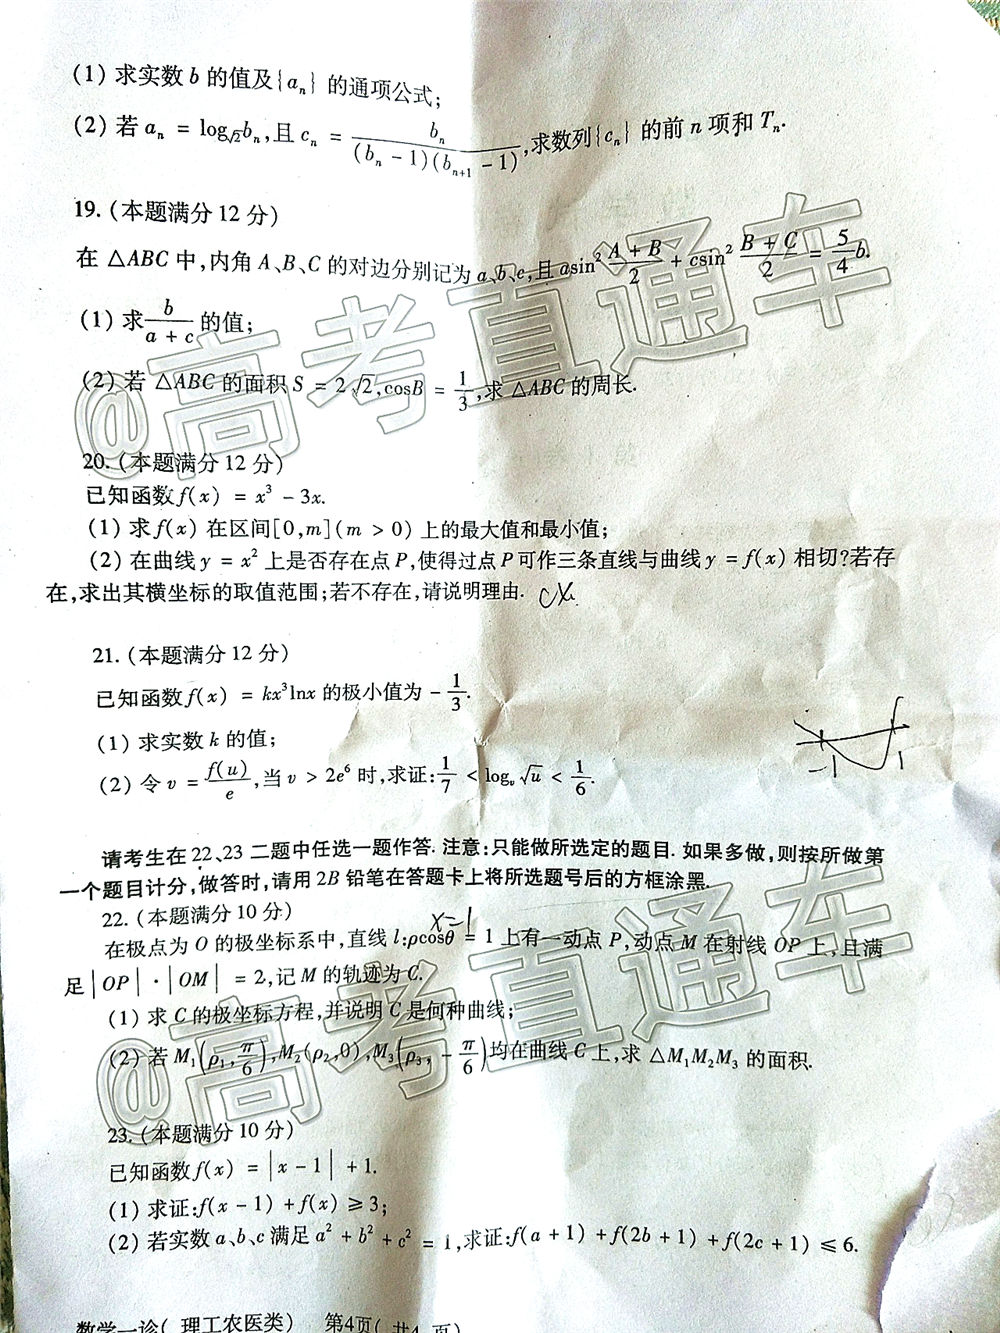 (1) 求实数 b 的值及{aₙ} 的通项公式;
(2) 若 aₙ = log_{√2}bₙ,且 cₙ = bₙ/((bₙ - 1)(bₙ₊₁ - 1)),求数列{cₙ} 的前 n 项和 Tₙ.
19. (本题满分 12 分)
在 △ABC 中,内角 A、B、C 的对边分别记为 a、b、c,且 asin²(A + B)/2 + csin²(B + C)/2 = 5/4 b.
(1) 求 b/(a + c) 的值;
(2) 若 △ABC 的面积 S = 2√2,cosB = 1/3,求 △ABC 的周长.
20. (本题满分 12 分)
已知函数 f(x) = x³ - 3x.
(1) 求 f(x) 在区间[0,m](m > 0) 上的最大值和最小值;
(2) 在曲线 y = x² 上是否存在点 P,使得过点 P 可作三条直线与曲线 y = f(x) 相切?若存
在,求出其横坐标的取值范围;若不存在,请说明理由.
21. (本题满分 12 分)
已知函数 f(x) = kx³lnx 的极小值为 - 1/3.
(1) 求实数 k 的值;
-1 1
(2) 令 v = f(u)/e,当 v > 2e⁶ 时,求证: 1/7 < log_v √u < 1/6.
请考生在 22、23 二题中任选一题作答. 注意:只能做所选定的题目. 如果多做,则按所做第
一个题目计分,做答时,请用 2B 铅笔在答题卡上将所选题号后的方框涂黑.
22. (本题满分 10 分)
x=1
在极点为 O 的极坐标系中,直线 l:ρcosθ = 1 上有一动点 P,动点 M 在射线 OP 上,且满
足|OP|·|OM| = 2,记 M 的轨迹为 C.
(1) 求 C 的极坐标方程,并说明 C 是何种曲线;
(2) 若 M₁(ρ₁, π/6),M₂(ρ₂,0),M₃(ρ₃, - π/6)均在曲线 C 上,求 △M₁M₂M₃ 的面积.
23. (本题满分 10 分)
已知函数 f(x) = |x - 1| + 1.
(1) 求证:f(x - 1) + f(x) ≥ 3;
(2) 若实数 a、b、c 满足 a² + b² + c² = 1,求证:f(a + 1) + f(2b + 1) + f(2c + 1) ≤ 6.
数学一诊( 理工农医类) 第4页( 共4 页)
@高考直通车
@高考直通车